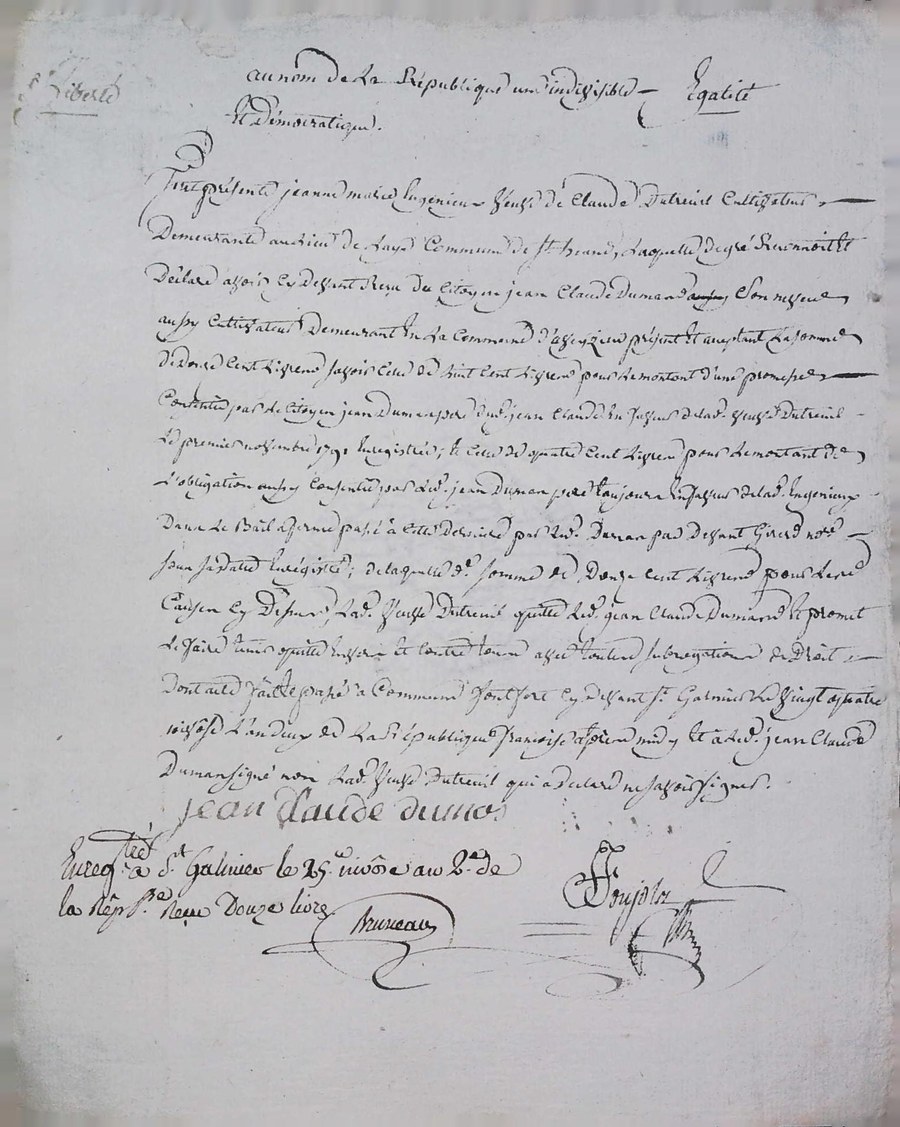 Liberté
au nom de La République une indivisible Egalité
Et Démocratique.
fut présente jeanne marie Ingenieux Veuve de Claude Dutreuil Cultivateur
Demeurante au lieu de Commune de St. heand, Laquelle de gré Reconnoit Et
Déclare avoir Cy devant Reçu Du Citoyen jean Claude Dumas Son neveu
aussy Cultivateur Demeurant En La Commune d'aveyzieu présent Et acceptant La somme
De Douze Cent Livres savoir Celle de huit Cent Livres pour Le montant d'une promesse
Consentie par Le Citoyen jean Dumas pere dud. jean Claude En faveur de lad. Veuve Dutreuil
Le premier novembre 1791 Enregistrée; Et Celle de quatre Cent Livres pour Le montant de
L'obligation aussy Consentie par Led. jean Dumas pere toujours En faveur de lad. Ingenieux
Dans Le Bail a ferme passé à Cette Derniere par Led. Dumas par Devant Girard nore
sous sa Datte Enrégistré; de laquelle de. somme de Douze Cent Livres pour Les
Causes Cy Dessus, Lad. Veuve Dutreuil quitte Led. jean Claude Dumas Et promet
Le faire tenir quitte Envers Et Contre tous avec toutes subrogations de Droit
Dont acte fait Et passé à Commune fontfort Cy devant St. Galmier Le Vingt quatre
nivôse L'an deux de La République françoise après midy Et a Led. jean Claude
Dumas signé non Lad. Veuve Dutreuil qui a Déclaré ne savoir signer.
jean Claude dumas
Enregtré à St. Galmier le 25e. nivôse an 2e. de
la Rép.que Reçu Douze livres
Bruneau